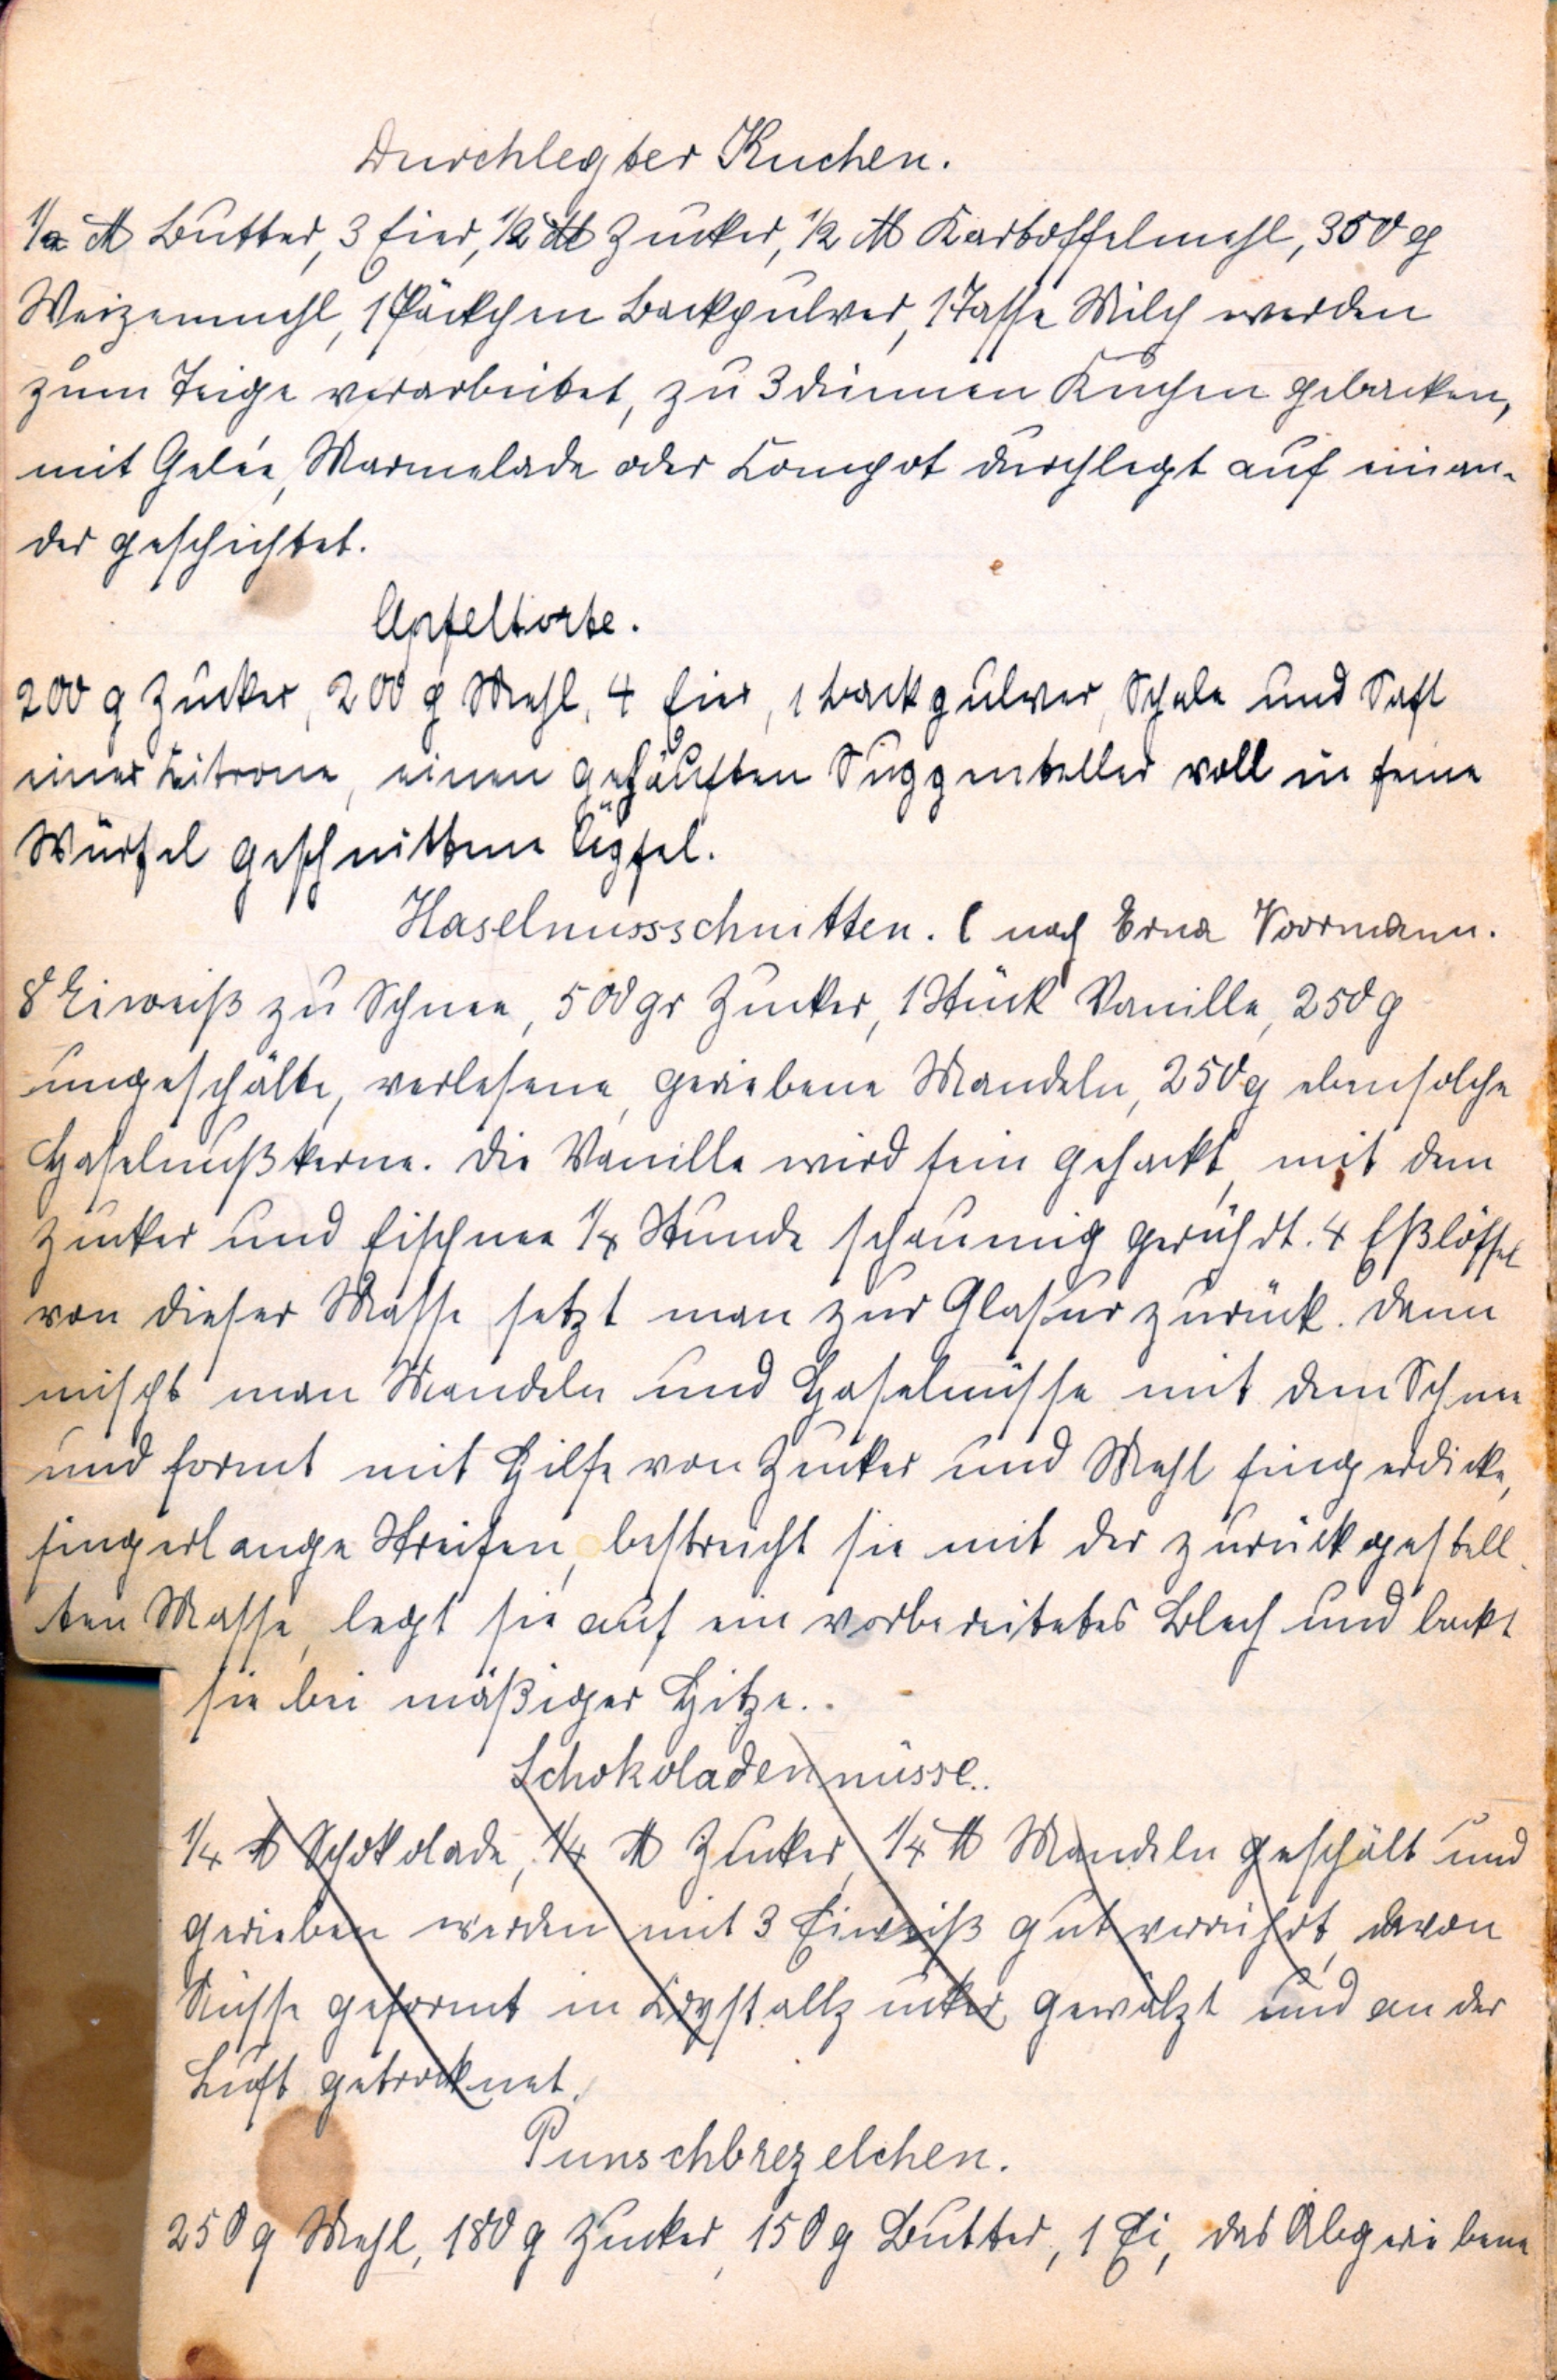 Durchlegter Kuchen.
1/2 ℔ Butter, 3 Eier, 1/2 ℔ Zucker, 1/2 ℔ Kartoffelmehl, 350 g
Weizenmehl, 1 Päckchen Backpulver, 1 Tasse Milch werden
zum Teige verarbeitet, zu 3 dünnen Kuchen gebacken,
mit Gelée, Marmelade oder Kompot durchlegt auf einan-
der geschichtet.
Apfeltorte.
200 g Zucker, 200 g Mehl, 4 Eier, 1 Backpulver, Schale und Saft
einer Zitrone, einen gehäuften Suppenteller voll in feine
Würfel geschnittene Äpfel.
Haselnussschnitten. ( nach Erna Voormann.
8 Eiweiß zu Schnee, 500 gr Zucker, 1 Stück Vanille, 250 g
ungeschälte, verlesene, geriebene Mandeln, 250 g ebensolche
Haselnußkerne. Die Vanille wird fein gehackt, mit dem
Zucker und Eischnee 1/4 Stunde schaumig gerührt. 4 Eßlöffel
von dieser Masse setzt man zur Glasur zurück. Dann
mischt man Mandeln und Haselnüsse mit dem Schnee
und formt mit Hilfe von Zucker und Mehl fingerdicke,
fingerlange Streifen, bestreicht sie mit der zurückgestell-
ten Masse, legt sie auf ein vorbereitetes Blech und backt
sie bei mäßiger Hitze..
Schokoladennüsse..
1/4 ℔ Schokolade, 1/4 ℔ Zucker, 1/4 ℔ Mandeln geschält und
gerieben werden mit 3 Eiweiß gut verrührt, davon
Nüsse geformt in Krystallzucker gewälzt und an der
Luft getrocknet.
Punschbrezelchen.
250 g Mehl, 180 g Zucker, 150 g Butter, 1 Ei, das Abgeriebene